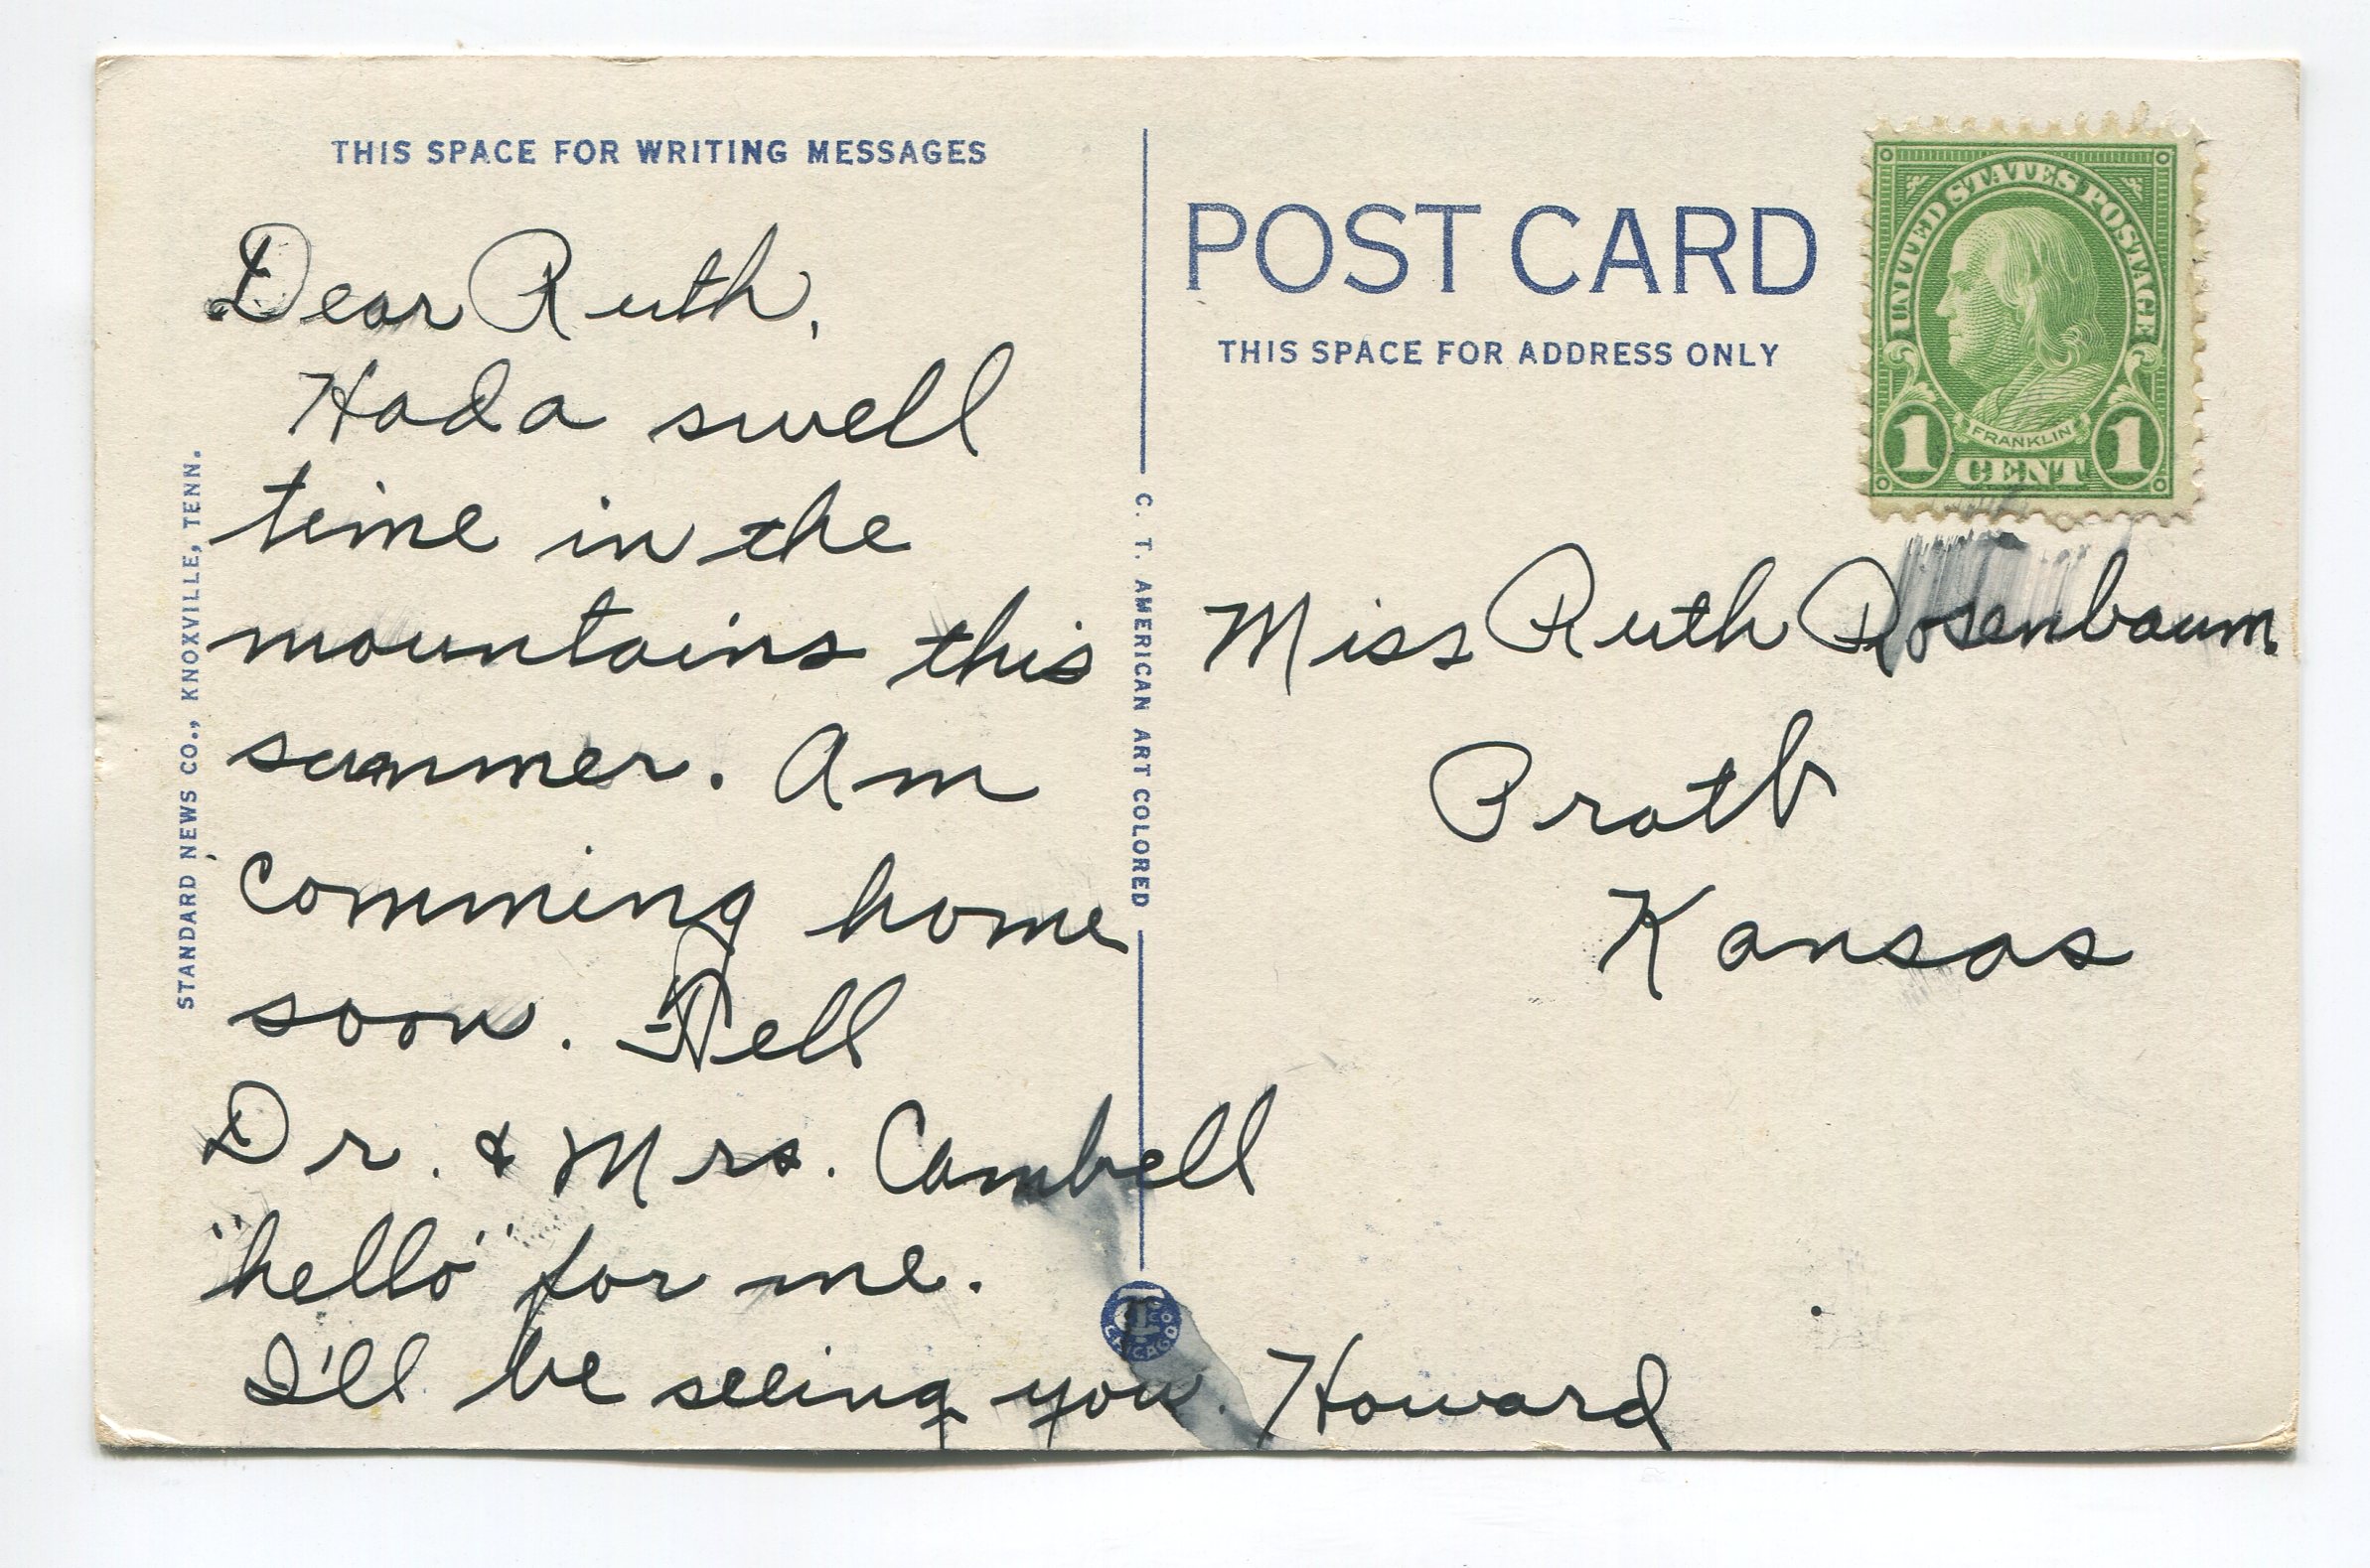 THIS SPACE FOR WRITING MESSAGES
Dear Ruth,
Had a swell
time in the
mountains this
summer. Am
comming home
soon. Tell
Dr. & Mrs. Cambell
"hello" for me.
I'll be seeing you. Howard
STANDARD NEWS CO., KNOXVILLE, TENN.
C. T. AMERICAN ART COLORED
POST CARD
THIS SPACE FOR ADDRESS ONLY
UNITED STATES POSTAGE
FRANKLIN
1 CENT 1
Miss Ruth Rosenbaum.
Pratt
Kansas
CHICAGO